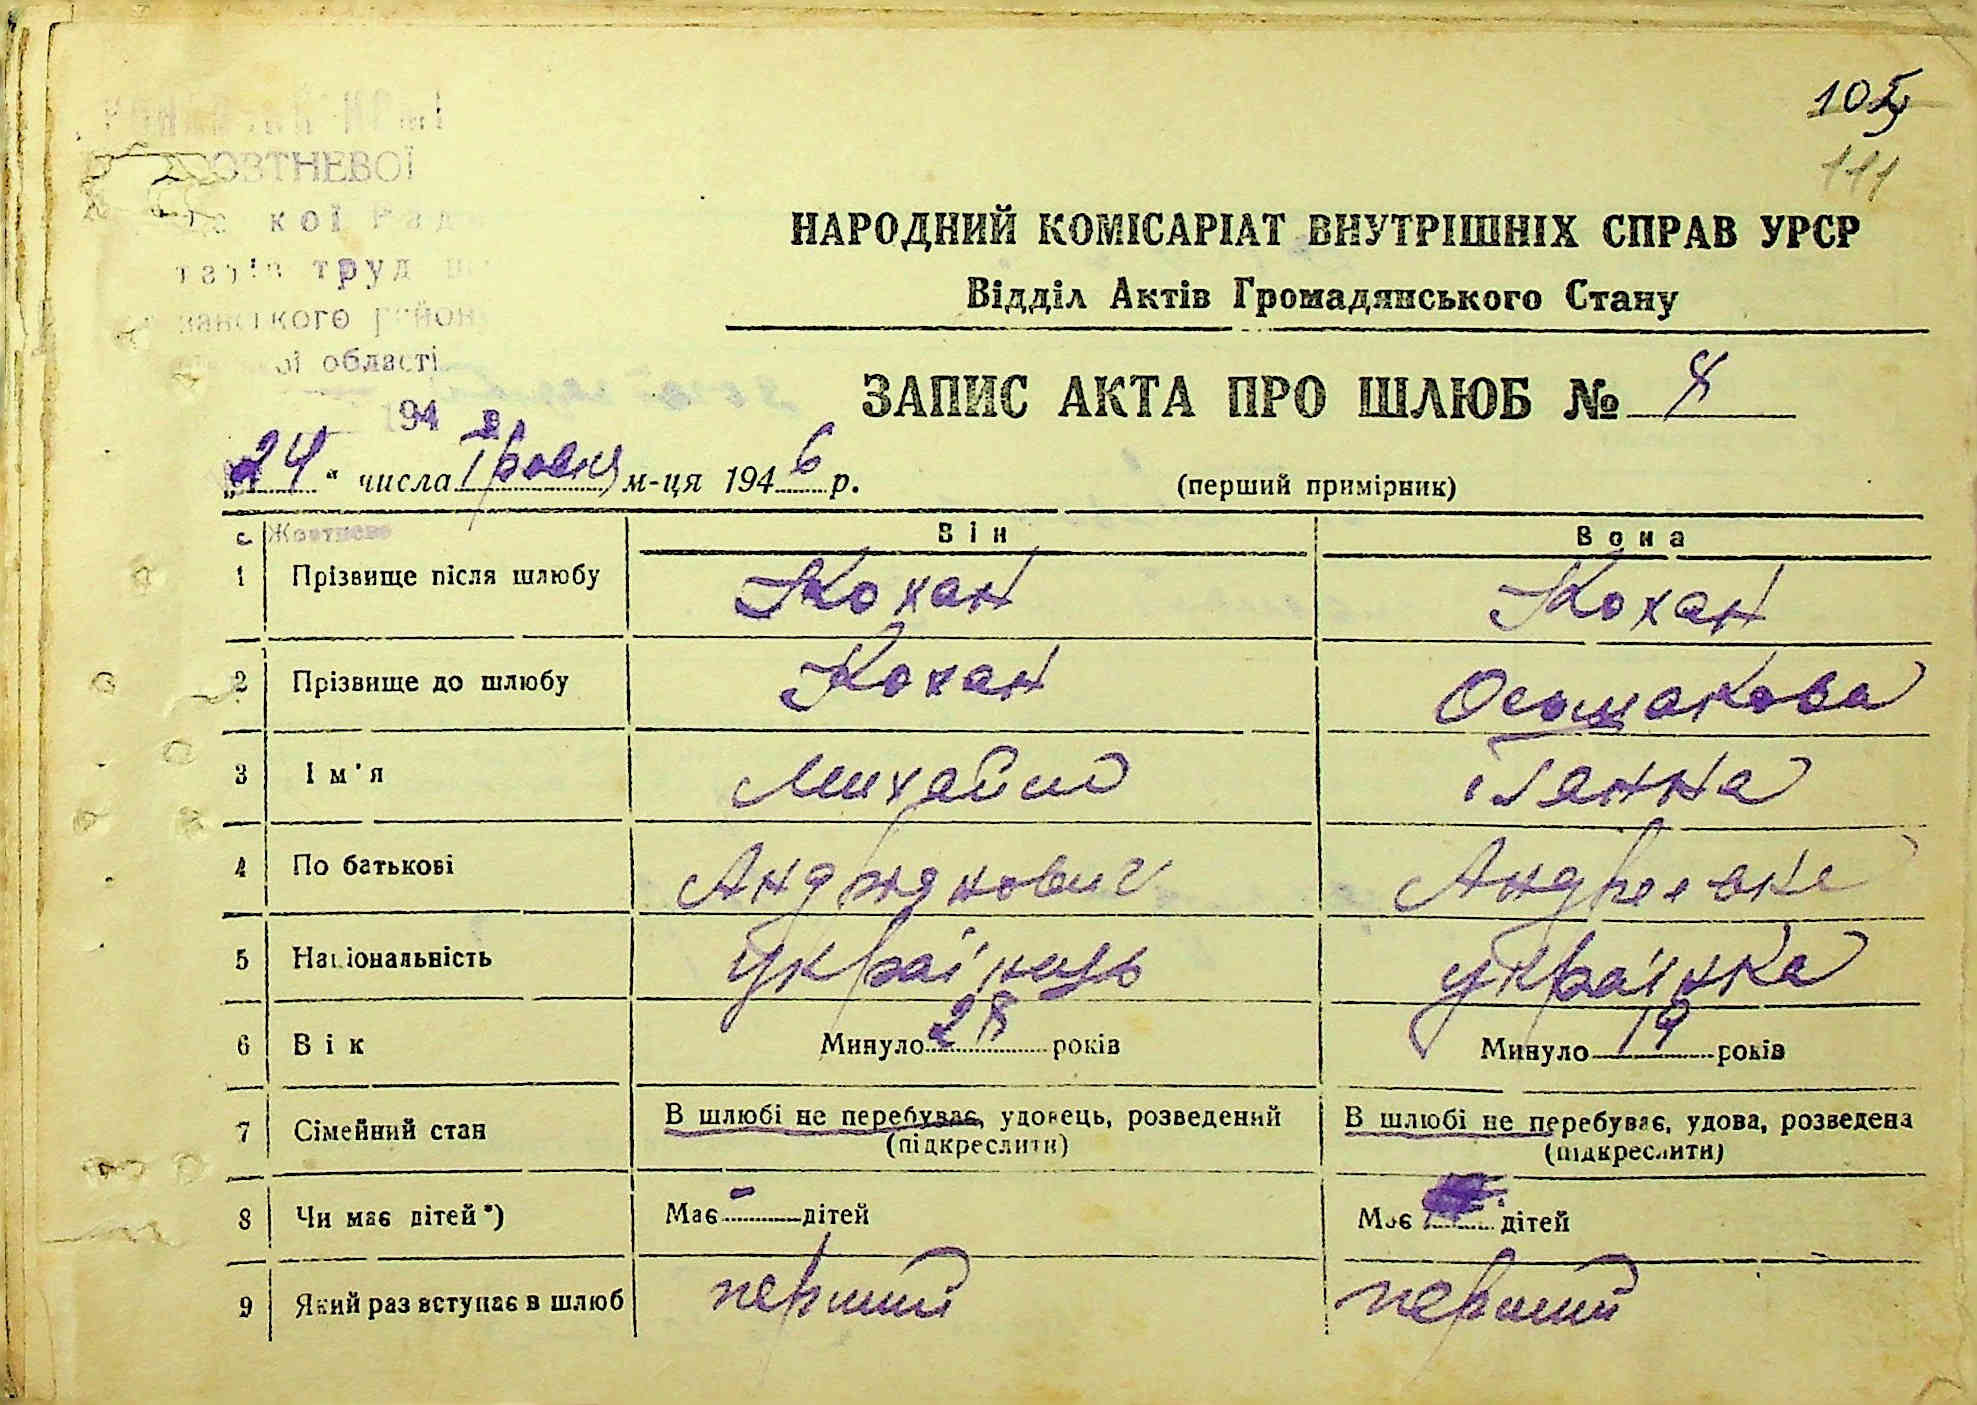 105
111
ОВТНЕВОЇ
кої Рад
труд
ького район
ої області
194
НАРОДНИЙ КОМІСАРІАТ ВНУТРІШНІХ СПРАВ УРСР
Відділ Актів Громадянського Стану
ЗАПИС АКТА ПРО ШЛЮБ № 8
„24" числа Травня м-ця 1946 р.
(перший примірник)
Жовтнева
Він Вона
1 Прізвище після шлюбу Кохан Кохан
2 Прізвище до шлюбу Кохан Осьмакова
3 Ім'я Михайло Ганна
4 По батькові Андріянович Андреевна
5 Національність українець українка
6 Вік Минуло 28 років Минуло 19 років
7 Сімейний стан В шлюбі не перебуває, удовець, розведений В шлюбі не перебуває, удова, розведена
(підкреслити) (підкреслити)
8 Чи має дітей*) Має - дітей Має дітей
9 Який раз вступає в шлюб перший перший